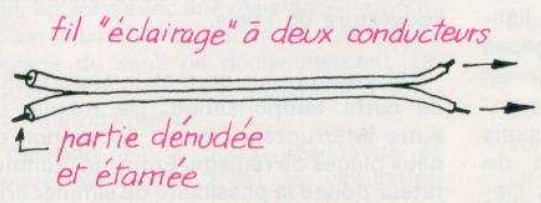 fil "éclairage" à deux conducteurs
partie dénudée
et étamée